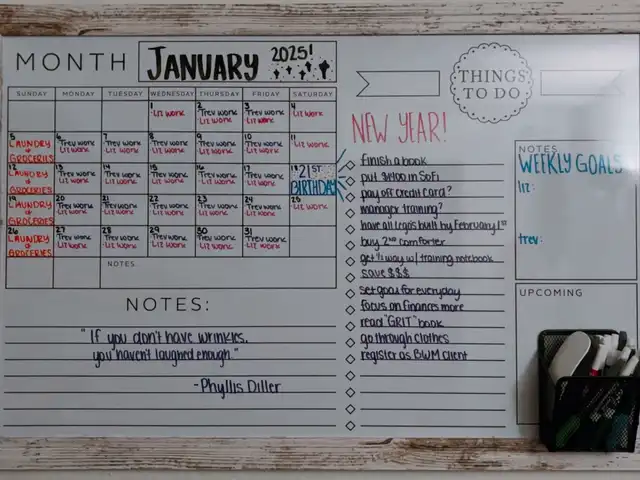 MONTH
JANUARY 2025!
SUNDAY MONDAY TUESDAY WEDNESDAY THURSDAY FRIDAY SATURDAY
1 2 3 4
Trev work Trev work
Liz work Liz work Liz work Liz work
5 6 7 8 9 10 11
LAUNDRY Trev work Trev work Trev work Trev work Trev work
& GROCERIES Liz work Liz work Liz work Liz work Liz work Liz work
12 13 14 15 16 17 18
LAUNDRY Trev work Trev work Trev work Trev work Trev work 21ST
& GROCERIES Liz work Liz work Liz work Liz work Liz work BIRTHDAY
19 20 21 22 23 24 25
LAUNDRY Trev work Trev work Trev work Trev work Trev work
& GROCERIES Liz work Liz work Liz work Liz work Liz work Liz work
26 27 28 29 30 31
LAUNDRY Trev work Trev work Trev work Trev work Trev work
& GROCERIES Liz work Liz work Liz work Liz work Liz work
NOTES
NOTES:
"If you don't have wrinkles,
you haven't laughed enough."
-Phyllis Diller
THINGS
TO DO
NEW YEAR!
finish a book
put $400 in SoFi
pay off credit card?
manager training?
have all legos built by February 1st
buy 2nd comforter
get 1/2 way w/ training notebook
save $$$
set goal for everyday
focus on finances more
read "GRIT" book
go through clothes
register as BWM client
NOTES
WEEKLY GOALS
liz:
trev:
UPCOMING